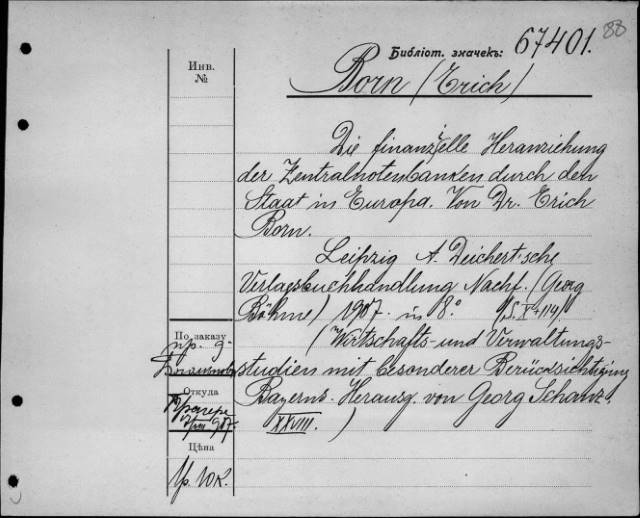 88
Библіот. значекъ: 67401.
Инв.
№
Born (Erich)
Die finanzielle Heranziehung
der Zentralnotenbanken durch den
Staat in Europa. Von Dr. Erich
Born.
Leipzig A. Deichert'sche
Verlagsbuchhandlung Nachf. (Georg
Böhme) 1907. in 8.° (S. X+114)
(Wirtschafts- und Verwaltungs-
studien mit besonderer Berücksichtigung
Bayerns. Herausg. von Georg Schanz.
XXVIII.)
По заказу
пр. д-
Откуда
907.
Цѣна
1р. 10к.